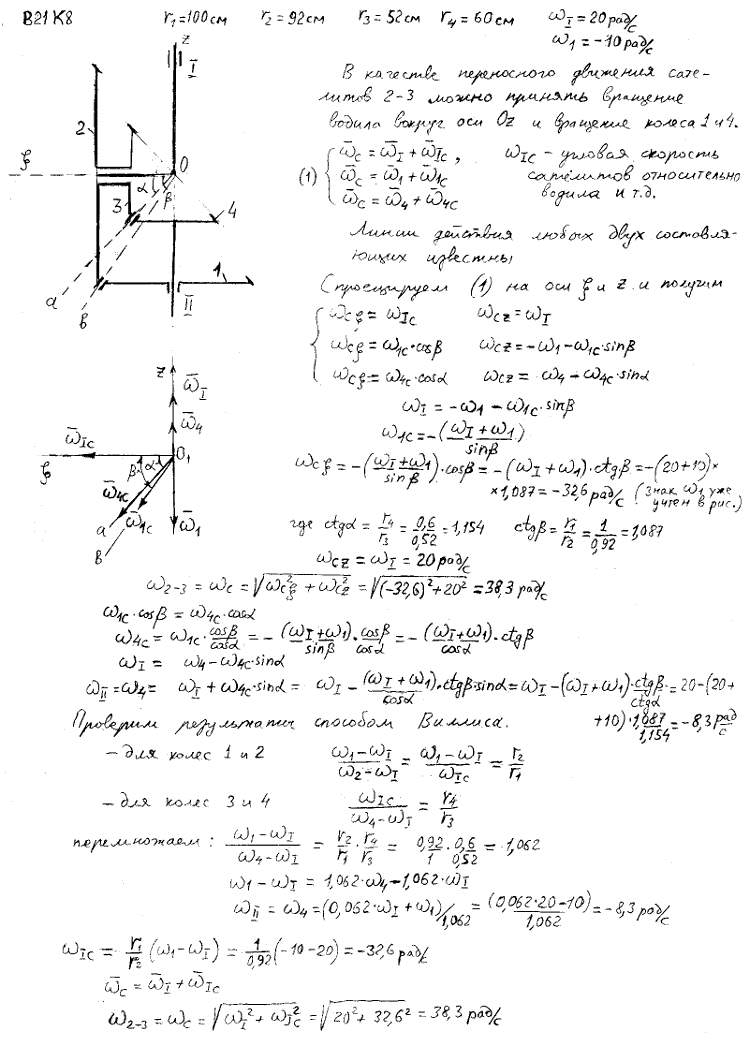 В21К8 r₁=100см r₂=92см r₃=52см r₄=60см ω_I=20рад/с
ω₁=−10рад/с
В качестве переносного движения сате-
литов 2-3 можно принять вращение
водила вокруг оси Oz и вращение колеса 1 и 4.
z
I
2
ξ
O
α
β
3
4
1
a
в
II
(1) { ω̄_c = ω̄_I + ω̄_Ic, ω_Ic – угловая скорость
ω̄_c = ω̄₁ + ω̄₁c сателитов относительно
ω̄_c = ω̄₄ + ω̄₄c водила и т.д.
Линии действия любых двух составля-
ющих известны
Спроецируем (1) на оси ξ и z и получим
{ ω_cξ = ω_Ic ω_cz = ω_I
ω_cξ = ω₁c·cosβ ω_cz = −ω₁−ω₁c·sinβ
ω_cξ = ω₄c·cosα ω_cz = ω₄−ω₄c·sinα
z
ω̄_I
ω̄₄
ω̄_Ic
ξ
O₁
β
α
ω̄₄c
ω̄₁c
a
в
ω̄₁
ω_I = −ω₁ − ω₁c·sinβ
ω₁c = −(ω_I + ω₁)/sinβ
ω_cξ = −(ω_I+ω₁)/sinβ·cosβ = −(ω_I+ω₁)·ctgβ = −(20+10)×
×1,087 = −32,6 рад/с (Знак ω₁ уже учтен в рис.)
где ctgα = r₄/r₃ = 0,6/0,52 = 1,154 ctgβ = r₁/r₂ = 1/0,92 = 1,087
ω_cz = ω_I = 20 рад/с
ω₂₋₃ = ω_c = √(ω_c²ξ + ω_c²z) = √((−32,6)²+20²) = 38,3 рад/с
ω₁c·cosβ = ω₄c·cosα
ω₄c = ω₁c·cosβ/cosα = −(ω_I+ω₁)/sinβ·cosβ/cosα = −(ω_I+ω₁)/cosα·ctgβ
ω_I = ω₄−ω₄c·sinα
ω_II=ω₄= ω_I + ω₄c·sinα = ω_I − (ω_I+ω₁)/cosα·ctgβ·sinα = ω_I−(ω_I+ω₁)·ctgβ/ctgα = 20−(20+
+10)·1,087/1,154 = −8,3 рад/с
Проверим результаты способом Виллиса.
– для колес 1 и 2 (ω₁−ω_I)/(ω₂−ω_I) = (ω₁−ω_I)/ω_Ic = r₂/r₁
– для колес 3 и 4 ω_Ic/(ω₄−ω_I) = r₄/r₃
перемножаем: (ω₁−ω_I)/(ω₄−ω_I) = r₂/r₁·r₄/r₃ = 0,92/1·0,6/0,52 = 1,062
ω₁−ω_I = 1,062·ω₄−1,062·ω_I
ω_II = ω₄ = (0,062·ω_I + ω₁)/1,062 = (0,062·20−10)/1,062 = −8,3 рад/с
ω_Ic = r₁/r₂(ω₁−ω_I) = 1/0,92(−10−20) = −32,6 рад/с
ω̄_c = ω̄_I + ω̄_Ic
ω₂₋₃ = ω_c = √(ω_I² + ω_Ic²) = √(20² + 32,6²) = 38,3 рад/с